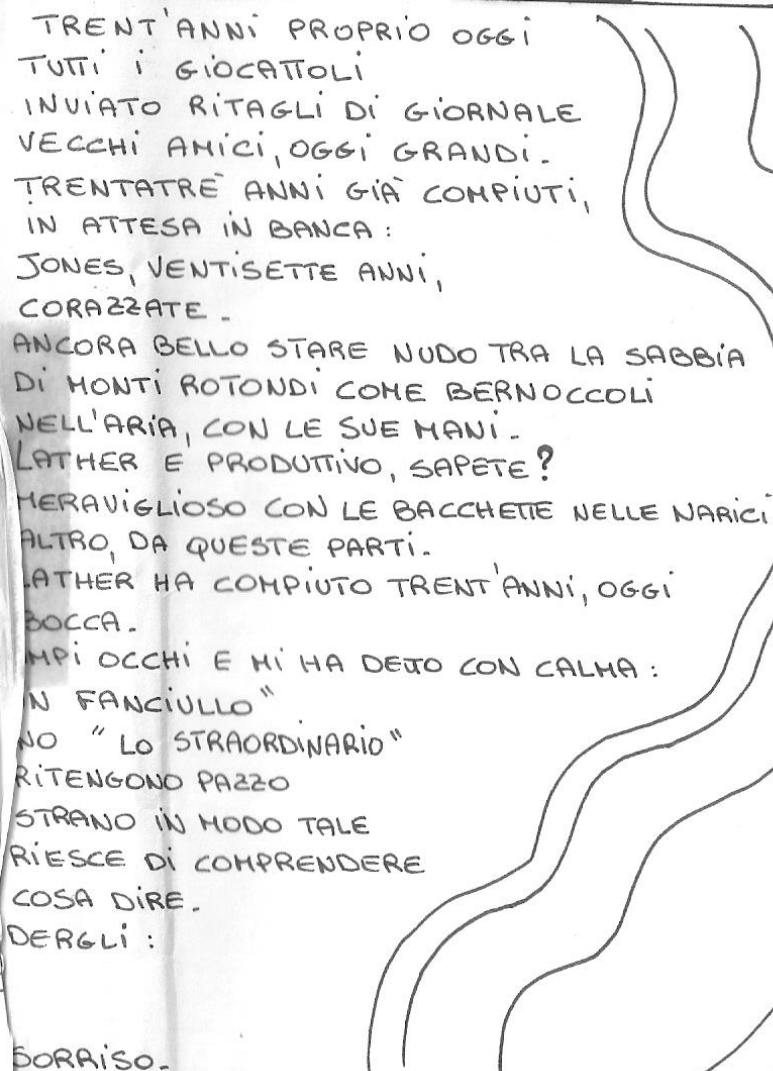 TRENT'ANNI PROPRIO OGGI
TUTTI I GIOCATTOLI
INVIATO RITAGLI DI GIORNALE
VECCHI AMICI, OGGI GRANDI.
TRENTATRE ANNI GIÀ COMPIUTI,
IN ATTESA IN BANCA:
JONES, VENTISETTE ANNI,
CORAZZATE.
ANCORA BELLO STARE NUDO TRA LA SABBIA
DI MONTI ROTONDI COME BERNOCCOLI
NELL'ARIA, CON LE SUE MANI.
LATHER E PRODUTTIVO, SAPETE?
MERAVIGLIOSO CON LE BACCHETTE NELLE NARICI
ALTRO, DA QUESTE PARTI.
LATHER HA COMPIUTO TRENT'ANNI, OGGI
BOCCA.
MPI OCCHI E MI HA DETTO CON CALMA:
N FANCIULLO"
NO "LO STRAORDINARIO"
RITENGONO PAZZO
STRANO IN MODO TALE
RIESCE DI COMPRENDERE
COSA DIRE.
DERGLI:
SORRISO.